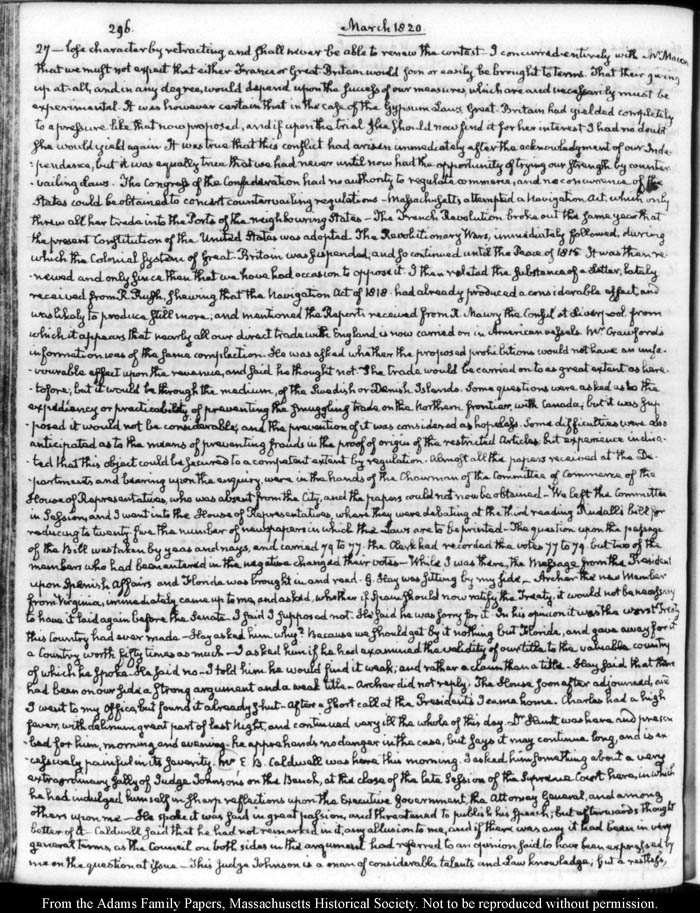 296.
March 1820
27 — lose character by retracting and shall never be able to renew the contest. I concurred entirely with Mr Macon
that we must not expect that either France or Great Britain would soon or easily be brought to terms. That their giving
up at all, and in any degree, would depend upon the success of our measures, which are and necessarily must be
experimental. It was however certain that in the case of the Gypsum Laws, Great Britain had yielded completely
to a pressure like that now proposed, and if upon the trial she should now find it for her interest I had no doubt
she would yield again. It was true that this conflict had arisen immediately after the acknowledgment of our Inde-
-pendence, but it was equally true that we had never until now had the opportunity of trying our strength by counter-
-vailing Laws. The Congress of the Confederation had no authority to regulate commerce, and no concurrence of the
States could be obtained to concert countervailing regulations — Massachusetts attempted a Navigation Act, which only
threw all her trade into the Ports of the neighbouring States — The French Revolution broke out the same year that
the present Constitution of the United States was adopted. The Revolutionary Wars, immediately followed, during
which the Colonial System of Great Britain was suspended, and so continued until the Peace of 1815. It was then re-
-newed and only since then that we have had occasion to oppose it. I then related the substance of a Letter, lately
received from R. Rush, shewing that the Navigation Act of 1818 had already produced a considerable effect, and
was likely to produce still more; and mentioned the Report received from J. Maury the Consul at Liverpool from
which it appears that nearly all our direct trade with England is now carried on in American vessels. Mr Crawford's
information was of the same complection. He was asked whether the proposed prohibitions would not have an unfa-
-vourable effect upon the revenue, and said he thought not. The trade would be carried on to as great extent as here-
-tofore, but it would be through the medium, of the Swedish or Danish Islands. Some questions were asked as to the
expediency or practicability of preventing the smuggling trade on the Northern frontier, with Canada; but it was sup-
-posed it would not be considerable, and the prevention of it was considered as hopeless. Some difficulties were also
anticipated as to the means of preventing frauds in the proof of origin of the restricted Articles, but experience indica-
-ted that this object could be secured to a competent extent by regulation. Almost all the papers received at the De-
-partments and bearing upon the enquiry were in the hands of the Chairman of the Committee of Commerce of the
House of Representatives, who was absent from the City, and the papers could not now be obtained — We left the Committee
in Session, and I went into the House of Representatives, where they were debating at the third reading Kendall's bill for
reducing to twenty five the number of newspapers in which the Laws are to be printed — The question upon the passage
of the Bill was taken by yeas and nays, and carried 79 to 77. The Clerk had recorded the votes 77 to 79. but two of the
members who had been entered in the negative changed their votes — While I was there, the Message from the President
upon Spanish Affairs and Florida was brought in and read. H. Clay was sitting by my side — Archer the new Member
from Virginia, immediately came up to me, and asked, whether if Spain should now ratify the Treaty, it would not be necessary
to have it laid again before the Senate. I said I supposed not. He said he was sorry for it. In his opinion it was the worst Treaty
this Country had ever made — Clay asked him why? Because we should get by it nothing but Florida, and gave away for it
a Country worth fifty times as much — I asked him if he had examined the validity of our title to the valuable country
of which he spoke. He said no — I told him he would find it weak, and rather a claim than a title. Clay said that there
had been on our side a strong argument and a weak title. Archer did not reply. The House soon after adjourned, and
I went to my office, but found it already shut — After a short call at the President's I came home. Charles had a high
fever, with delirium great part of last Night, and continued very ill the whole of this day. Dr Huntt was here and prescri-
-bed for him, morning and evening. he apprehends no danger in the case, but says it may continue long, and is ex-
-cessively painful in its severity. Mr E. B. Caldwell was here this morning. I asked him something about a very
extraordinary sally of Judge Johnson's on the Bench, at the close of the late Session of the Supreme Court here, in which
he had indulged himself in sharp reflections upon the Executive Government, the Attorney General, and among
others upon me — He spoke it was said in great passion, and threatened to publish his speech; but afterwards thought
better of it. Caldwell said that he had not remarked in it, any allusion to me, and if there was any it had been in very
general terms, as the Council on both sides in the argument had referred to an opinion said to have been expressed by
me on the question at issue — This Judge Johnson is a man of considerable talents and Law knowledge; but a restless,
From the Adams Family Papers, Massachusetts Historical Society. Not to be reproduced without permission.